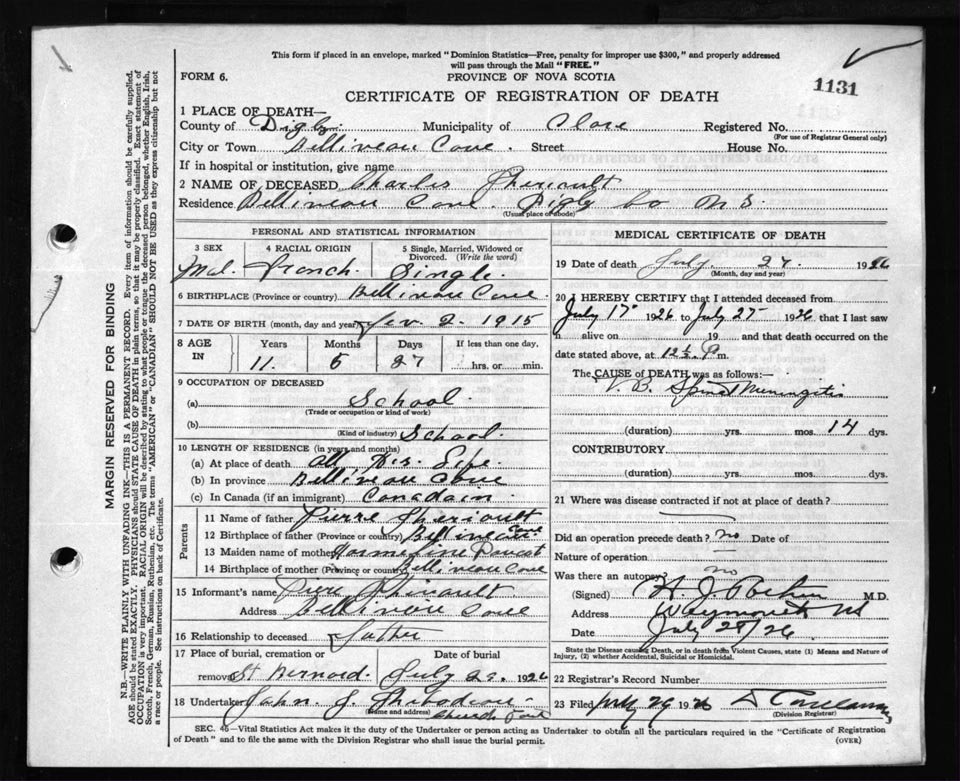 This form if placed in an envelope, marked "Dominion Statistics—Free, penalty for improper use $300," and properly addressed
will pass through the Mail "FREE."
FORM 6.
PROVINCE OF NOVA SCOTIA
1131
CERTIFICATE OF REGISTRATION OF DEATH
1 PLACE OF DEATH—
County of Digby Municipality of Clare Registered No.
(For use of Registrar General only)
City or Town Bellineau Cove. Street House No.
If in hospital or institution, give name
2 NAME OF DECEASED Charles Theriault
Residence Bellineau Cove. Digby Co N S.
(Usual place of abode)
PERSONAL AND STATISTICAL INFORMATION
3 SEX
Mal.
4 RACIAL ORIGIN
French.
5 Single, Married, Widowed or
Divorced. (Write the word)
Single.
6 BIRTHPLACE (Province or country) Bellineau Cove
7 DATE OF BIRTH (month, day and year) 2. 1915
8 AGE
IN
Years
11.
Months
5
Days
27
If less than one day,
hrs. or min.
9 OCCUPATION OF DECEASED
(a) School
(Trade or occupation or kind of work)
(b)
(Kind of industry) School.
10 LENGTH OF RESIDENCE (in years and months)
(a) At place of death All His Life.
(b) In province Bellineau Cove
(c) In Canada (if an immigrant) Canadain.
Parents
11 Name of father Pierre Theriault
12 Birthplace of father (Province or country) Bellineau Cove
13 Maiden name of mother
14 Birthplace of mother (Province or country) Bellineau Cove
15 Informant's name Theriault
Address Bellineau Cove
16 Relationship to deceased father
17 Place of burial, cremation or
removal St Bernard.
Date of burial
July 1926
18 Undertaker John J.
(Name and address) Church
MEDICAL CERTIFICATE OF DEATH
19 Date of death July 27. 1926
(Month, day and year)
20 I HEREBY CERTIFY that I attended deceased from
July 17 1926 to July 27 1926 that I last saw
h alive on 19 and that death occurred on the
date stated above, at 12½ P m.
The CAUSE OF DEATH was as follows:—
Spinal Meningitis
(duration) yrs. mos. 14 dys.
CONTRIBUTORY
(duration) yrs. mos. dys.
21 Where was disease contracted if not at place of death?
Did an operation precede death? no Date of
Nature of operation
Was there an autopsy? no
(Signed) M.D.
Address Weymouth NS
Date July 28/26
State the Disease causing Death, or in death from Violent Causes, state (1) Means and Nature of
Injury, (2) whether Accidental, Suicidal or Homicidal.
22 Registrar's Record Number
23 Filed July 29 1926
(Division Registrar)
SEC. 46—Vital Statistics Act makes it the duty of the Undertaker or person acting as Undertaker to obtain all the particulars required in the "Certificate of Registration
of Death" and to file the same with the Division Registrar who shall issue the burial permit.
(OVER)
MARGIN RESERVED FOR BINDING
N.B.—WRITE PLAINLY WITH UNFADING INK—THIS IS A PERMANENT RECORD. Every item of information should be carefully supplied.
AGE should be stated EXACTLY. PHYSICIANS should STATE CAUSE OF DEATH in plain terms, so that it may be properly classified. Exact statement of
OCCUPATION is very important. RACIAL ORIGIN will be described by stating to what people or tongue the deceased person belonged, whether English, Irish,
Scotch, French, German, Russian, Ruthenian, etc. The terms "AMERICAN" or "CANADIAN" SHOULD NOT BE USED as they express citizenship but not
a race or people. See instructions on back of Certificate.